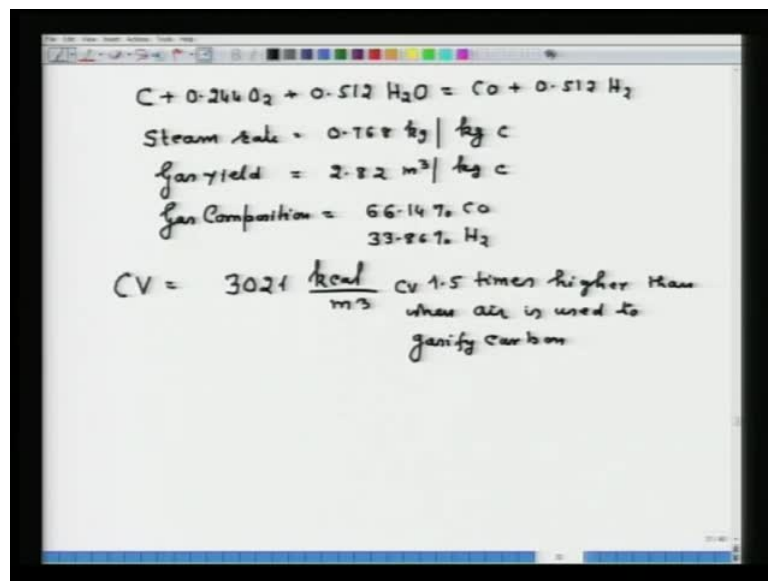 C + 0.244 O2 + 0.512 H2O = CO + 0.512 H2
Steam rate = 0.768 kg | kg C
Gas yield = 2.82 m3 | kg C
Gas Composition = 66.14 % CO
33.86 % H2
CV = 3021 kcal/m3 CV 1.5 times higher than
when air is used to
gasify carbon